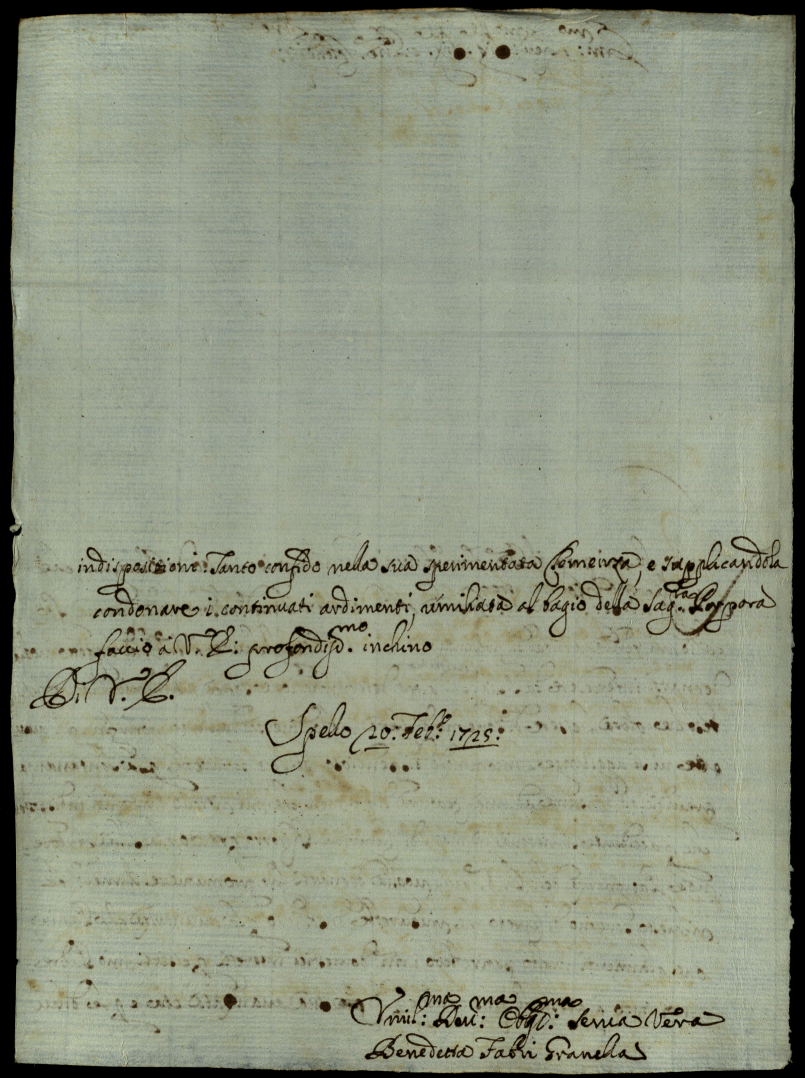 indispositione. Tanto confido nella sua sperimentata Clemenza, e supplicandola
condonare i continuati ardimenti, umiliata al bagio della Sag.ra Porpora
faccio à V. E: profondiss.mo inchino
Di V. E.
Spello 20. Feb.o 1725.
Umil:ma Dev:ma Obg:ma Serva Vera
Benedetta Fabri Granella